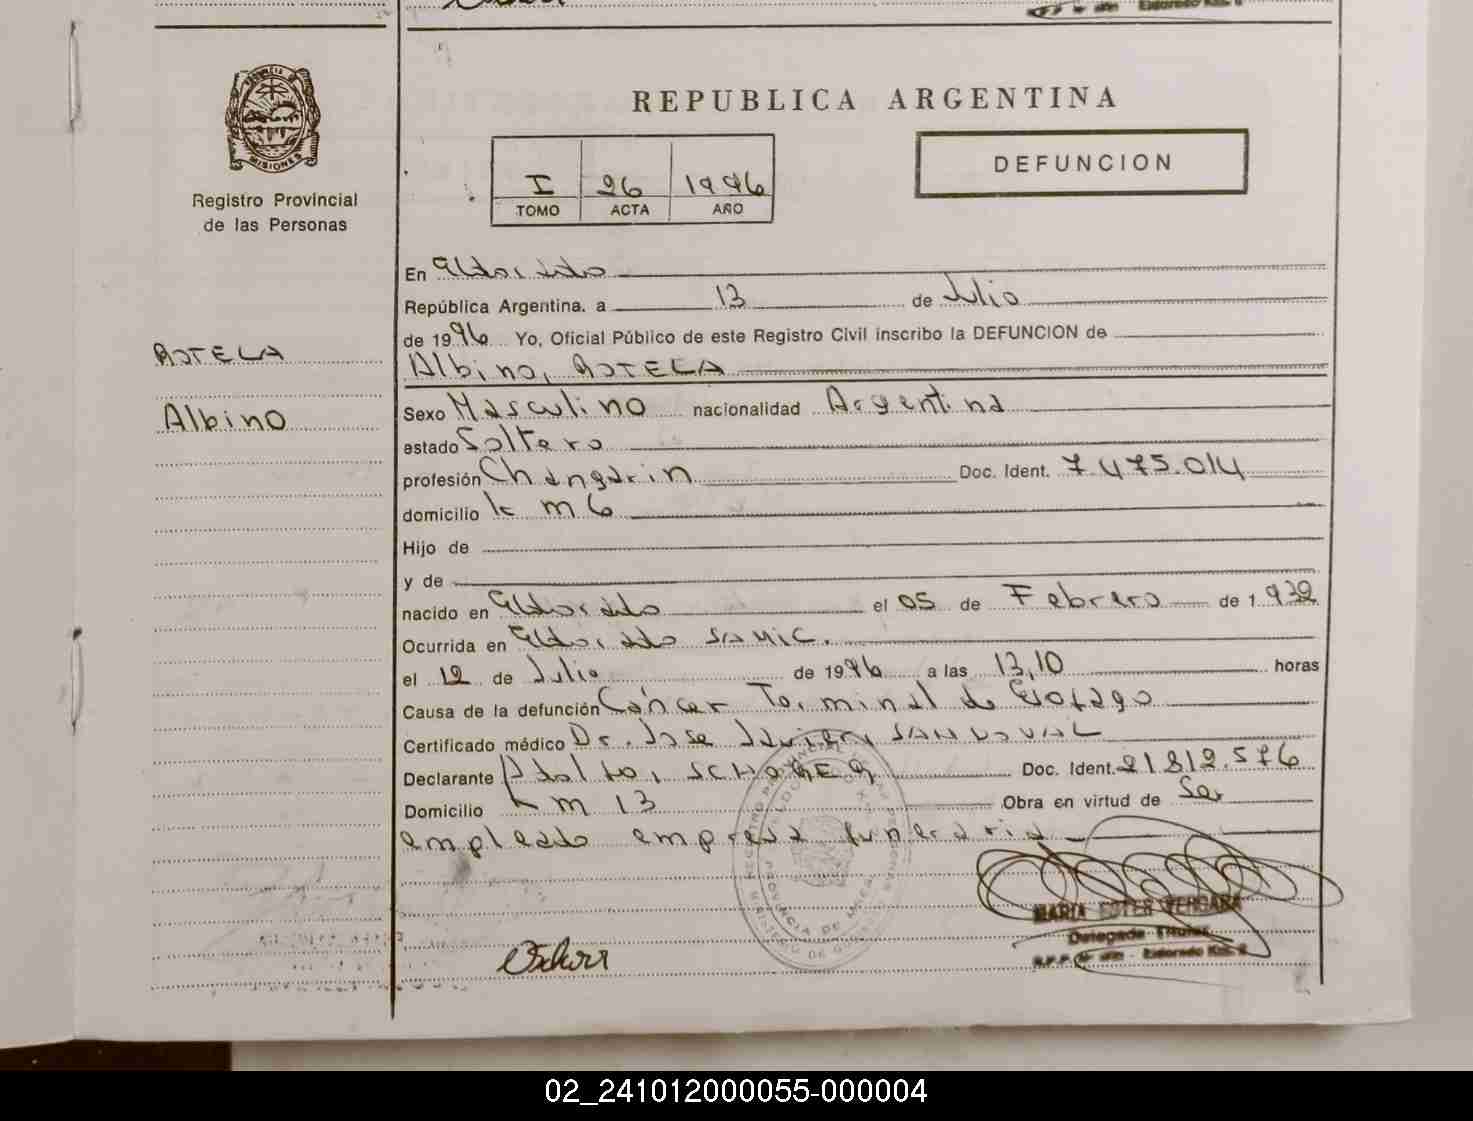 REPUBLICA ARGENTINA
PROVINCIA DE
MISIONES
Registro Provincial
de las Personas
I 26 1996
TOMO ACTA AÑO
DEFUNCION
En Eldorado
República Argentina. a 13 de Julio
de 1996 Yo, Oficial Público de este Registro Civil inscribo la DEFUNCION de
Albino, ROTELA
ROTELA
Albino
Sexo Masculino nacionalidad Argentina
estado Soltero
profesión Changarin Doc. Ident. 7.475.014
domicilio km 6
Hijo de
y de
nacido en Eldorado el 05 de Febrero de 1.932
Ocurrida en Eldorado SAMIC.
el 12 de Julio de 1996 a las 13,10 horas
Causa de la defunción Cáncer Terminal de Esofago
Certificado médico Dr. Jose Javier, SANDOVAL
Declarante Adolfo, Doc. Ident. 21.812.576
Domicilio km 13 Obra en virtud de Ser
empleado empresa funeraria
MARIA ESTER VERGARA
Delegada Titular
Eldorado Km.
02_241012000055-000004